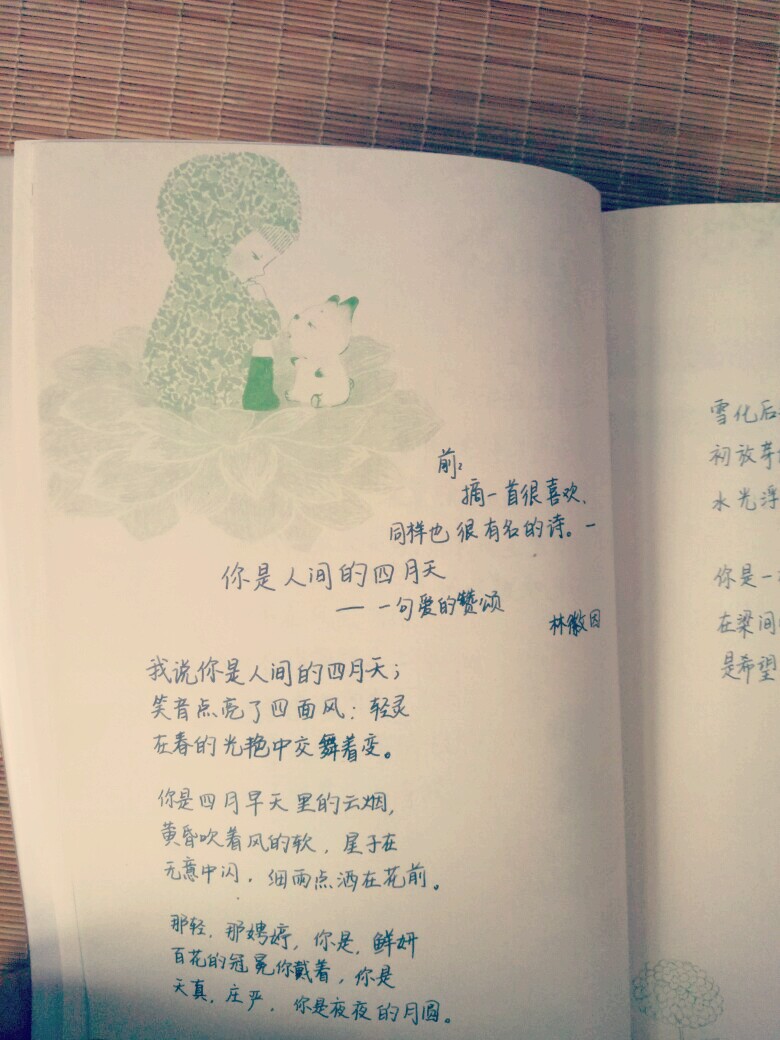 前:
摘一首很喜欢、
同样也很有名的诗。—
你是人间的四月天
— 一句爱的赞颂
林徽因
我说你是人间的四月天；
笑音点亮了四面风；轻灵
在春的光艳中交舞着变。
你是四月早天里的云烟，
黄昏吹着风的软，星子在
无意中闪，细雨点洒在花前。
那轻，那娉婷，你是，鲜妍
百花的冠冕你戴着，你是
天真，庄严，你是夜夜的月圆。
雪化后
初放芽
水光浮
你是一
在梁间
是希望